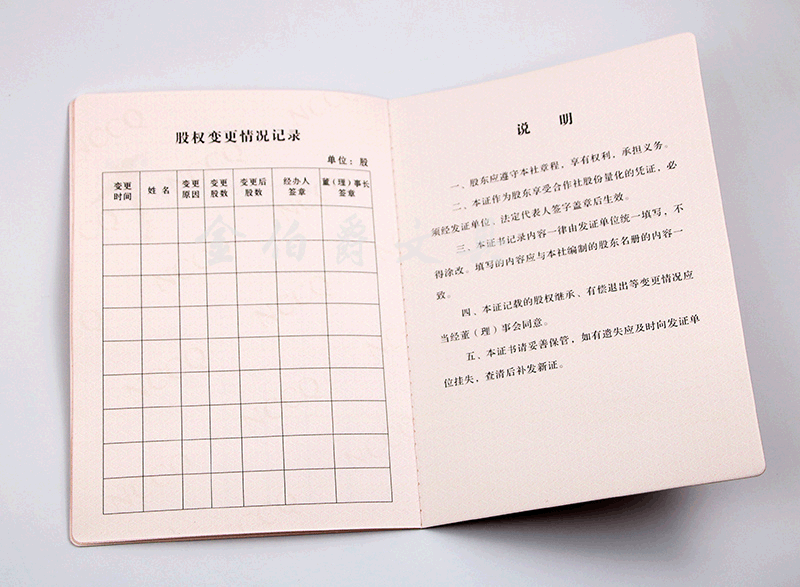 股权变更情况记录
单位：股
变更时间 姓名 变更原因 变更股数 变更后股数 经办人签章 董（理）事长签章
金伯爵文
说 明
一、股东应遵守本社章程，享有权利，承担义务。
二、本证作为股东享受合作社股份量化的凭证，必
须经发证单位、法定代表人签字盖章后生效。
三、本证书记录内容一律由发证单位统一填写，不
得涂改。填写的内容应与本社编制的股东名册的内容一
致。
四、本证记载的股权继承、有偿退出等变更情况应
当经董（理）事会同意。
五、本证书请妥善保管，如有遗失应及时向发证单
位挂失，查清后补发新证。